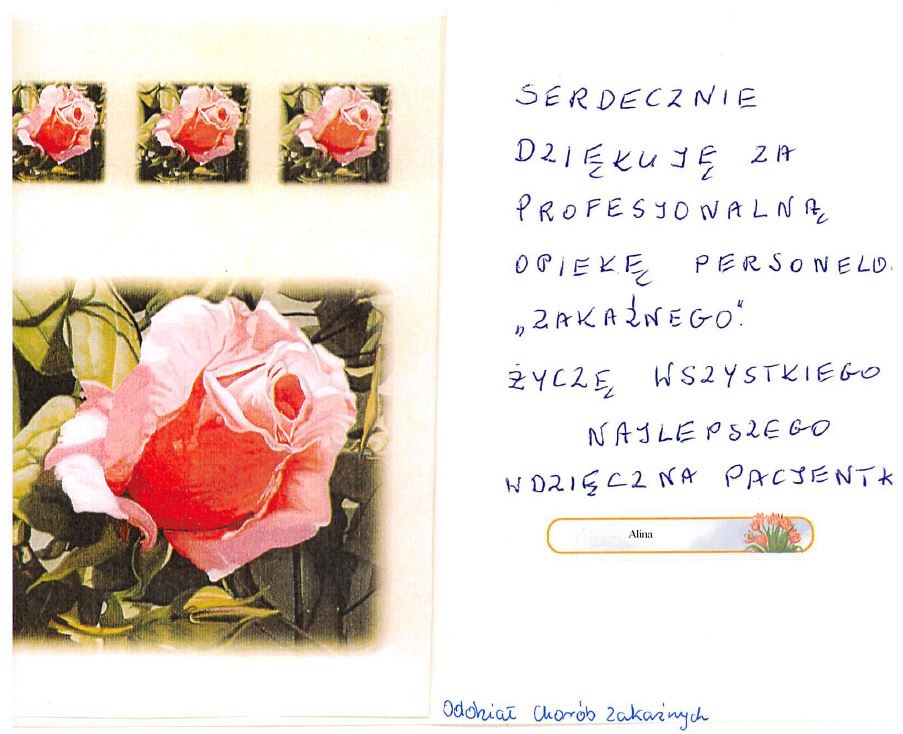 SERDECZNIE
DZIĘKUJĘ ZA
PROFESJONALNĄ
OPIEKĘ PERSONELO
„ZAKAŹNEGO".
ŻYCZĘ WSZYSTKIEGO
NAJLEPSZEGO
WDZIĘCZNA PACJENTK
Alina
Oddział Chorób Zakaźnych